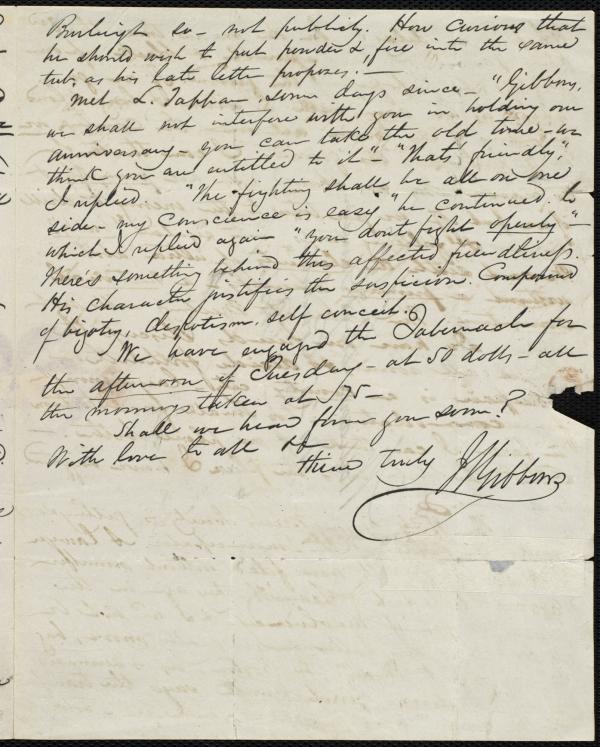 Burleigh so - not publicly. How curious that
he should wish to put powder & fire into the same
tub, as his late letter proposes. —
Met L. Tappan, some days since - "Gibbons,
we shall not interfere with you in holding our
anniversary - you can take the old time - we
think you are entitled to it" - "That's friendly",
I replied. "The fighting shall be all on one
side - my conscience is easy" he continued. to
which I replied again "you don't fight openly" -
There's something behind this affected friendliness.
His character justifies the suspicion. Compound
of bigotry, despotism, self conceit.
We have engaged the Tabernacle for
the afternoon of Tuesday - at 50 dolls - all
the mornings taken at $75 -
Shall we hear from you soon?
With love to all
thine truly J S Gibbons